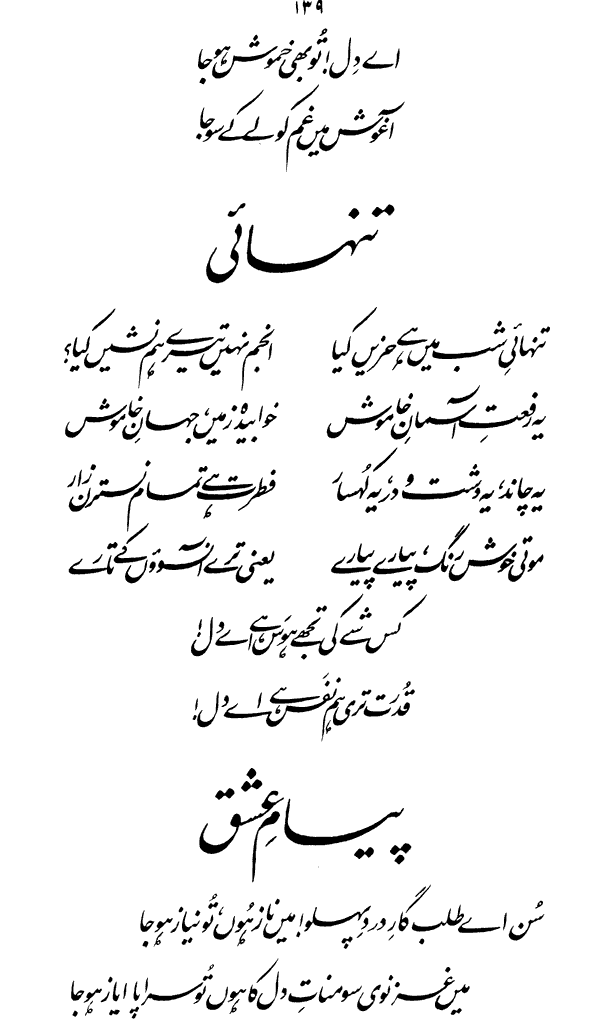 ۱۳۹
اے دِل! تُو بھی خموش ہو جا
آغوش میں غم کو لے کے سو جا
تنہائی
تنہائیِ شب میں ہے حزیں کیا انجم نہیں تیرے ہم نشیں کیا؟
یہ رفعتِ آسمانِ خاموش خوابیدہ زمیں، جہانِ خاموش
یہ چاند، یہ دشت و در، یہ کُہسار فطرت ہے تمام نسترن زار
موتی خوش رنگ، پیارے پیارے یعنی ترے آنسوؤں کے تارے
کس شے کی تجھے ہوَس ہے اے دل!
قُدرت تری ہم نفَس ہے اے دل!
پیامِ عشق
سُن اے طلب گارِ دردِ پہلو! میں ناز ہُوں، تُو نیاز ہو جا
میں غزنوی سومناتِ دل کا ہوں تُو سراپا ایاز ہو جا